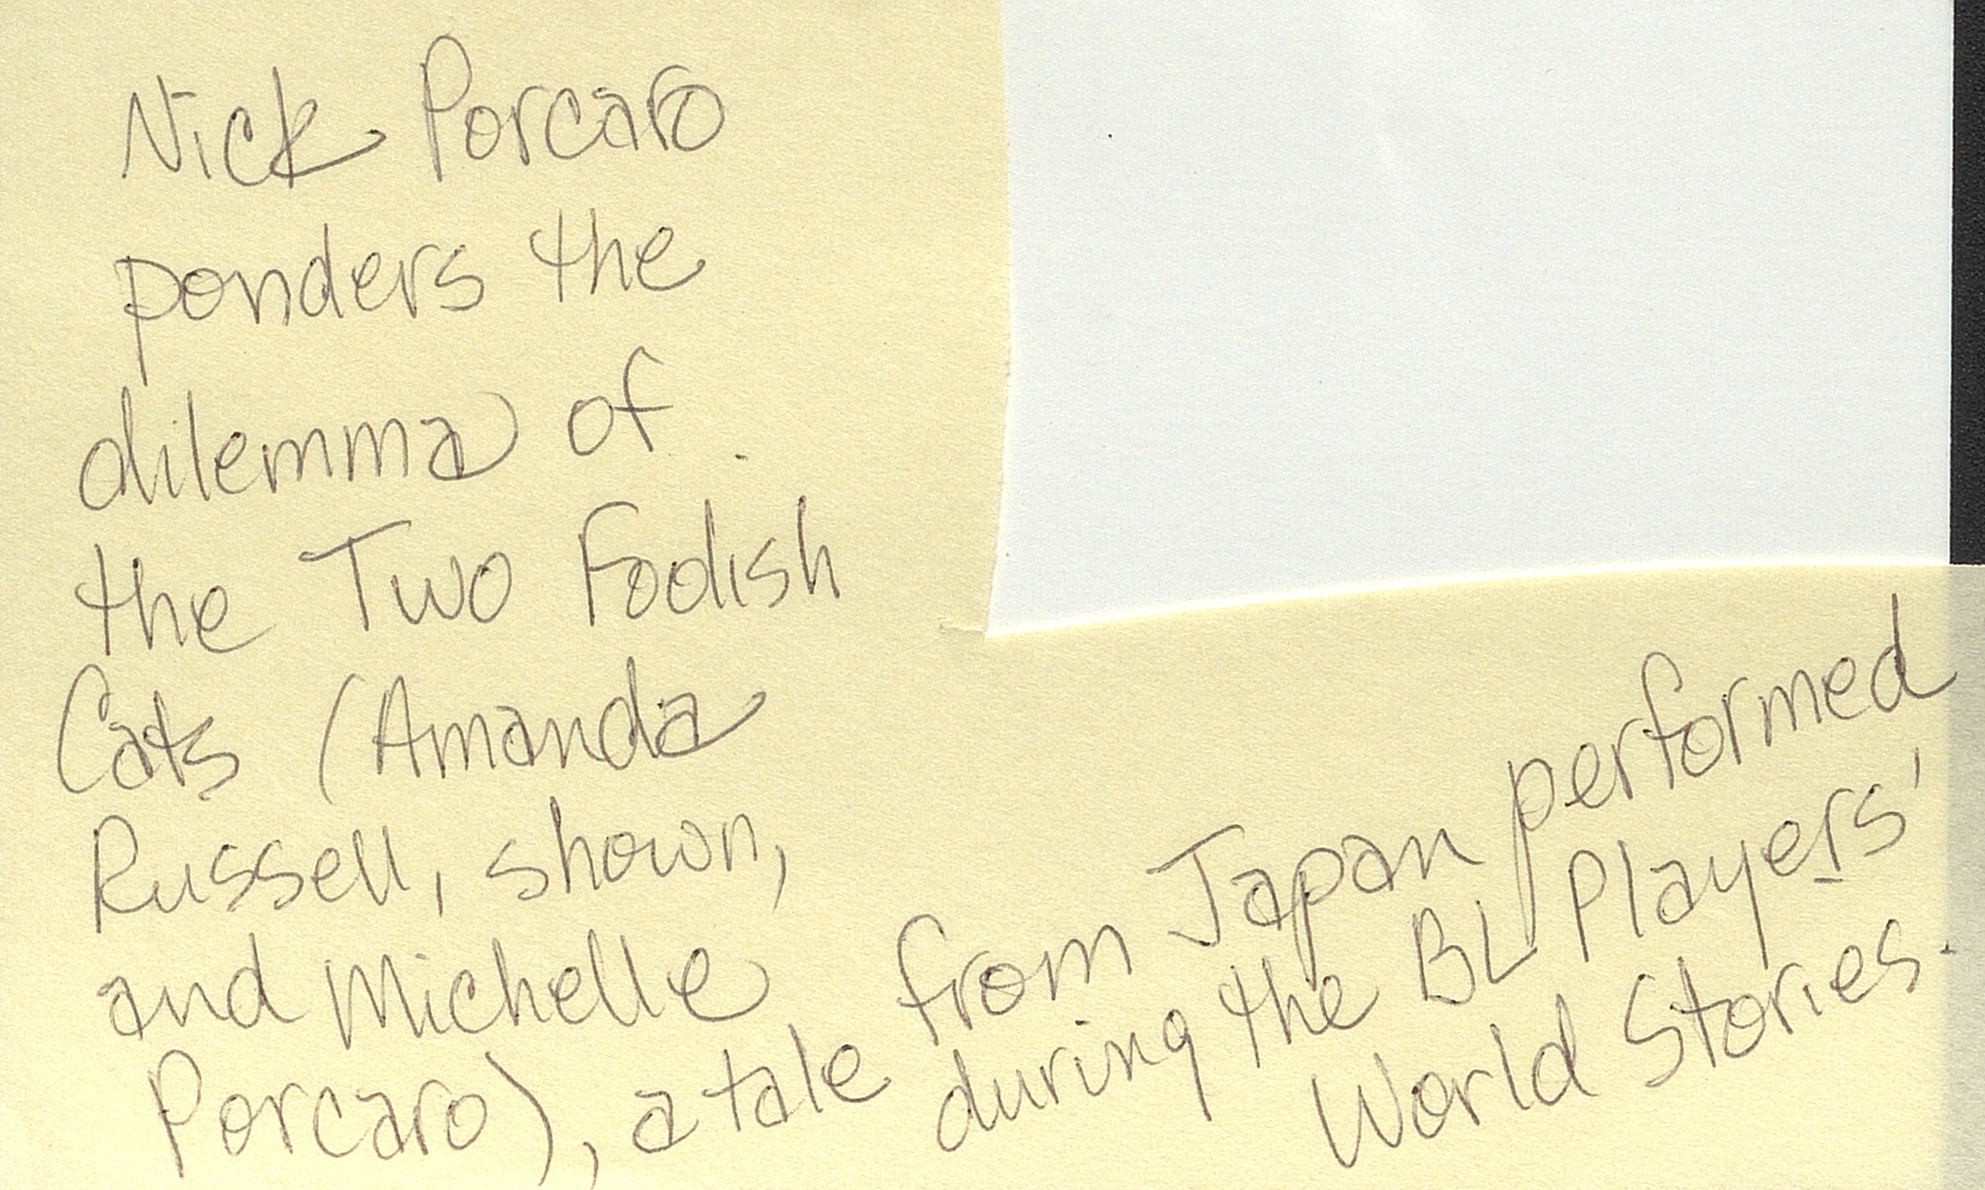 Nick Porcaro
ponders the
dilemma of
the Two Foolish
Cats (Amanda
Russell, shown,
and Michelle
Porcaro), a tale from Japan performed
during the BL Players'
World Stories.